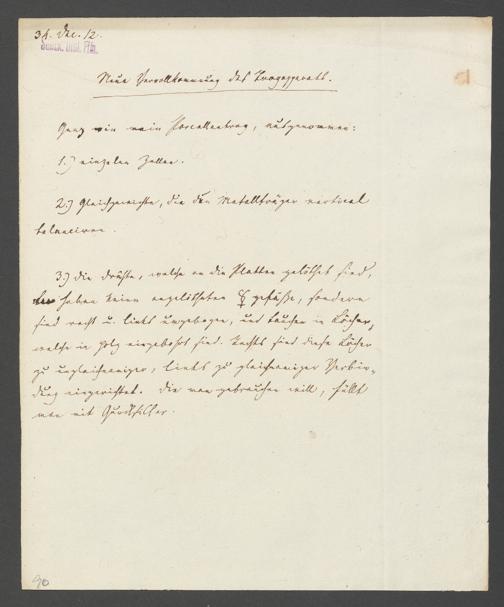 31. Dec. 12.
Senck. Inst. Ffm.
Neue Vervollkommnung des Trogapparats.
Ganz wie mein Porcellantrog, ausgenommen:
1.) einzelne Zellen.
2.) Gleichgewichte, die den Metallträger vertical
balanciren.
3.) die Drähte, welche an die Platten gelöthet sind,
haben keine angelötheten ☿ gefäße, sondern
sind rechts u. links umgebogen, und tauchen in Löcher,
welche in Holz eingebohrt sind. Rechts sind diese Löcher
zu ungleichnamiger, links zu gleichnamiger Verbin-
dung eingerichtet. Die man gebrauchen will, füllt
man mit Quecksilber.
90